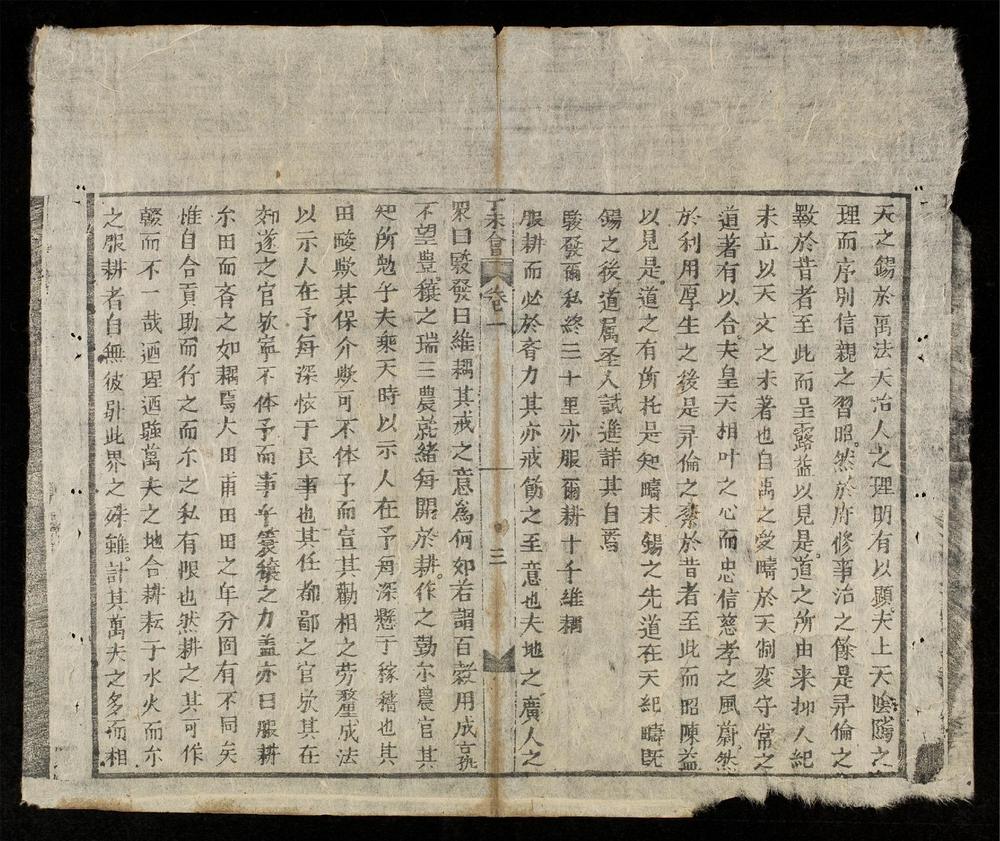 天之錫於萬法天治人之理明有以顕夫上天陰隲之
理而序別信親之習昭然於府修事治之餘是尋倫之
斁於昔者至此而呈露益以見是道之所由来抑人紀
未立以天文之未著也自禹之受疇於天制変守常之
道著有以合夫皇天相叶之心而忠信慈孝之風蔚然
於利用厚生之後是尋倫之紊於昔者至此而昭陳益
以見是道之有所托是知疇未錫之先道在天紀疇既
錫之後道属圣人試進詳其自焉
駿發爾私終三十里亦服爾耕十千維耦
服耕而必於斉力其亦戒飭之至意也夫地之廣人之
丁未會 卷一 三
眾曰駿發曰維耦其戒之意為何如若謂百穀用成孰
不望豊穰之瑞三農就緒每開於耕作之勤尓農官其
知所勉乎夫乘天時以示人在予每深懸于稼穡也其
田畯欤其保介欤可不体予而宣其勸相之劳釐成法
以示人在予每深恢于民事也其任都鄙之官欤其在
郊遂之官欤寧不体予而事乎穰之力盖亦曰服耕
尓田而斉之如耦焉大田甫田田之年分固有不同矣
惟自合貢助而行之而尓之私有限也然耕之其可作
輟而不一哉迺理迺疆萬夫之地合耕耘于水火而尓
之服耕者自無彼此界之殊雖計其萬夫之多而相